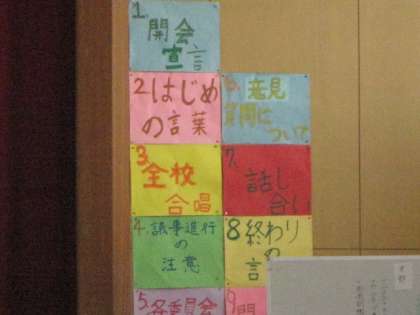 1.
開会
宣言
2.はじめ
の言葉
3.
全校
合唱
4.議事進行
の
注意
5.各委員会
6.意見
質問に
ついて
7.
話し
合い
8終わり
の
言
9開